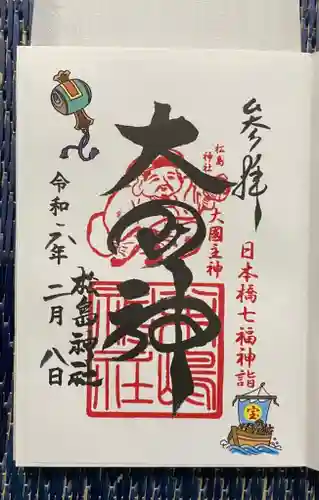 参拝
日本橋七福神詣
宝
松島神社
大國主神
大国神
松島神社
松島神社
令和六年二月八日